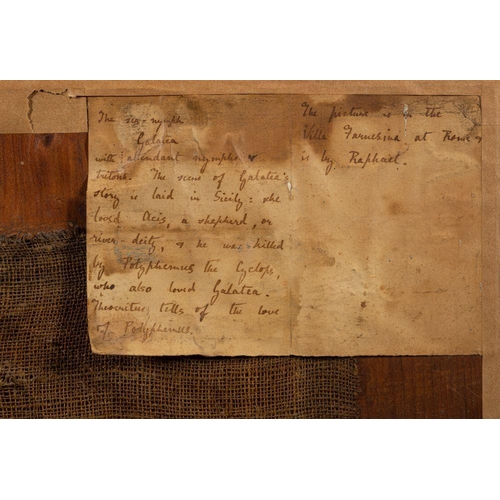 The sea-nymph
Galatea
with attendant nymphs &
tritons. The scene of Galatea's
story is laid in Sicily: she
loved Acis, a shepherd, or
river-deity, & he was killed
by Polyphemus the Cyclops,
who also loved Galatea.
Theocritus tells of the love
of Polyphemus.
The picture is in the
Villa Farnesina, at Rome &
is by Raphael.